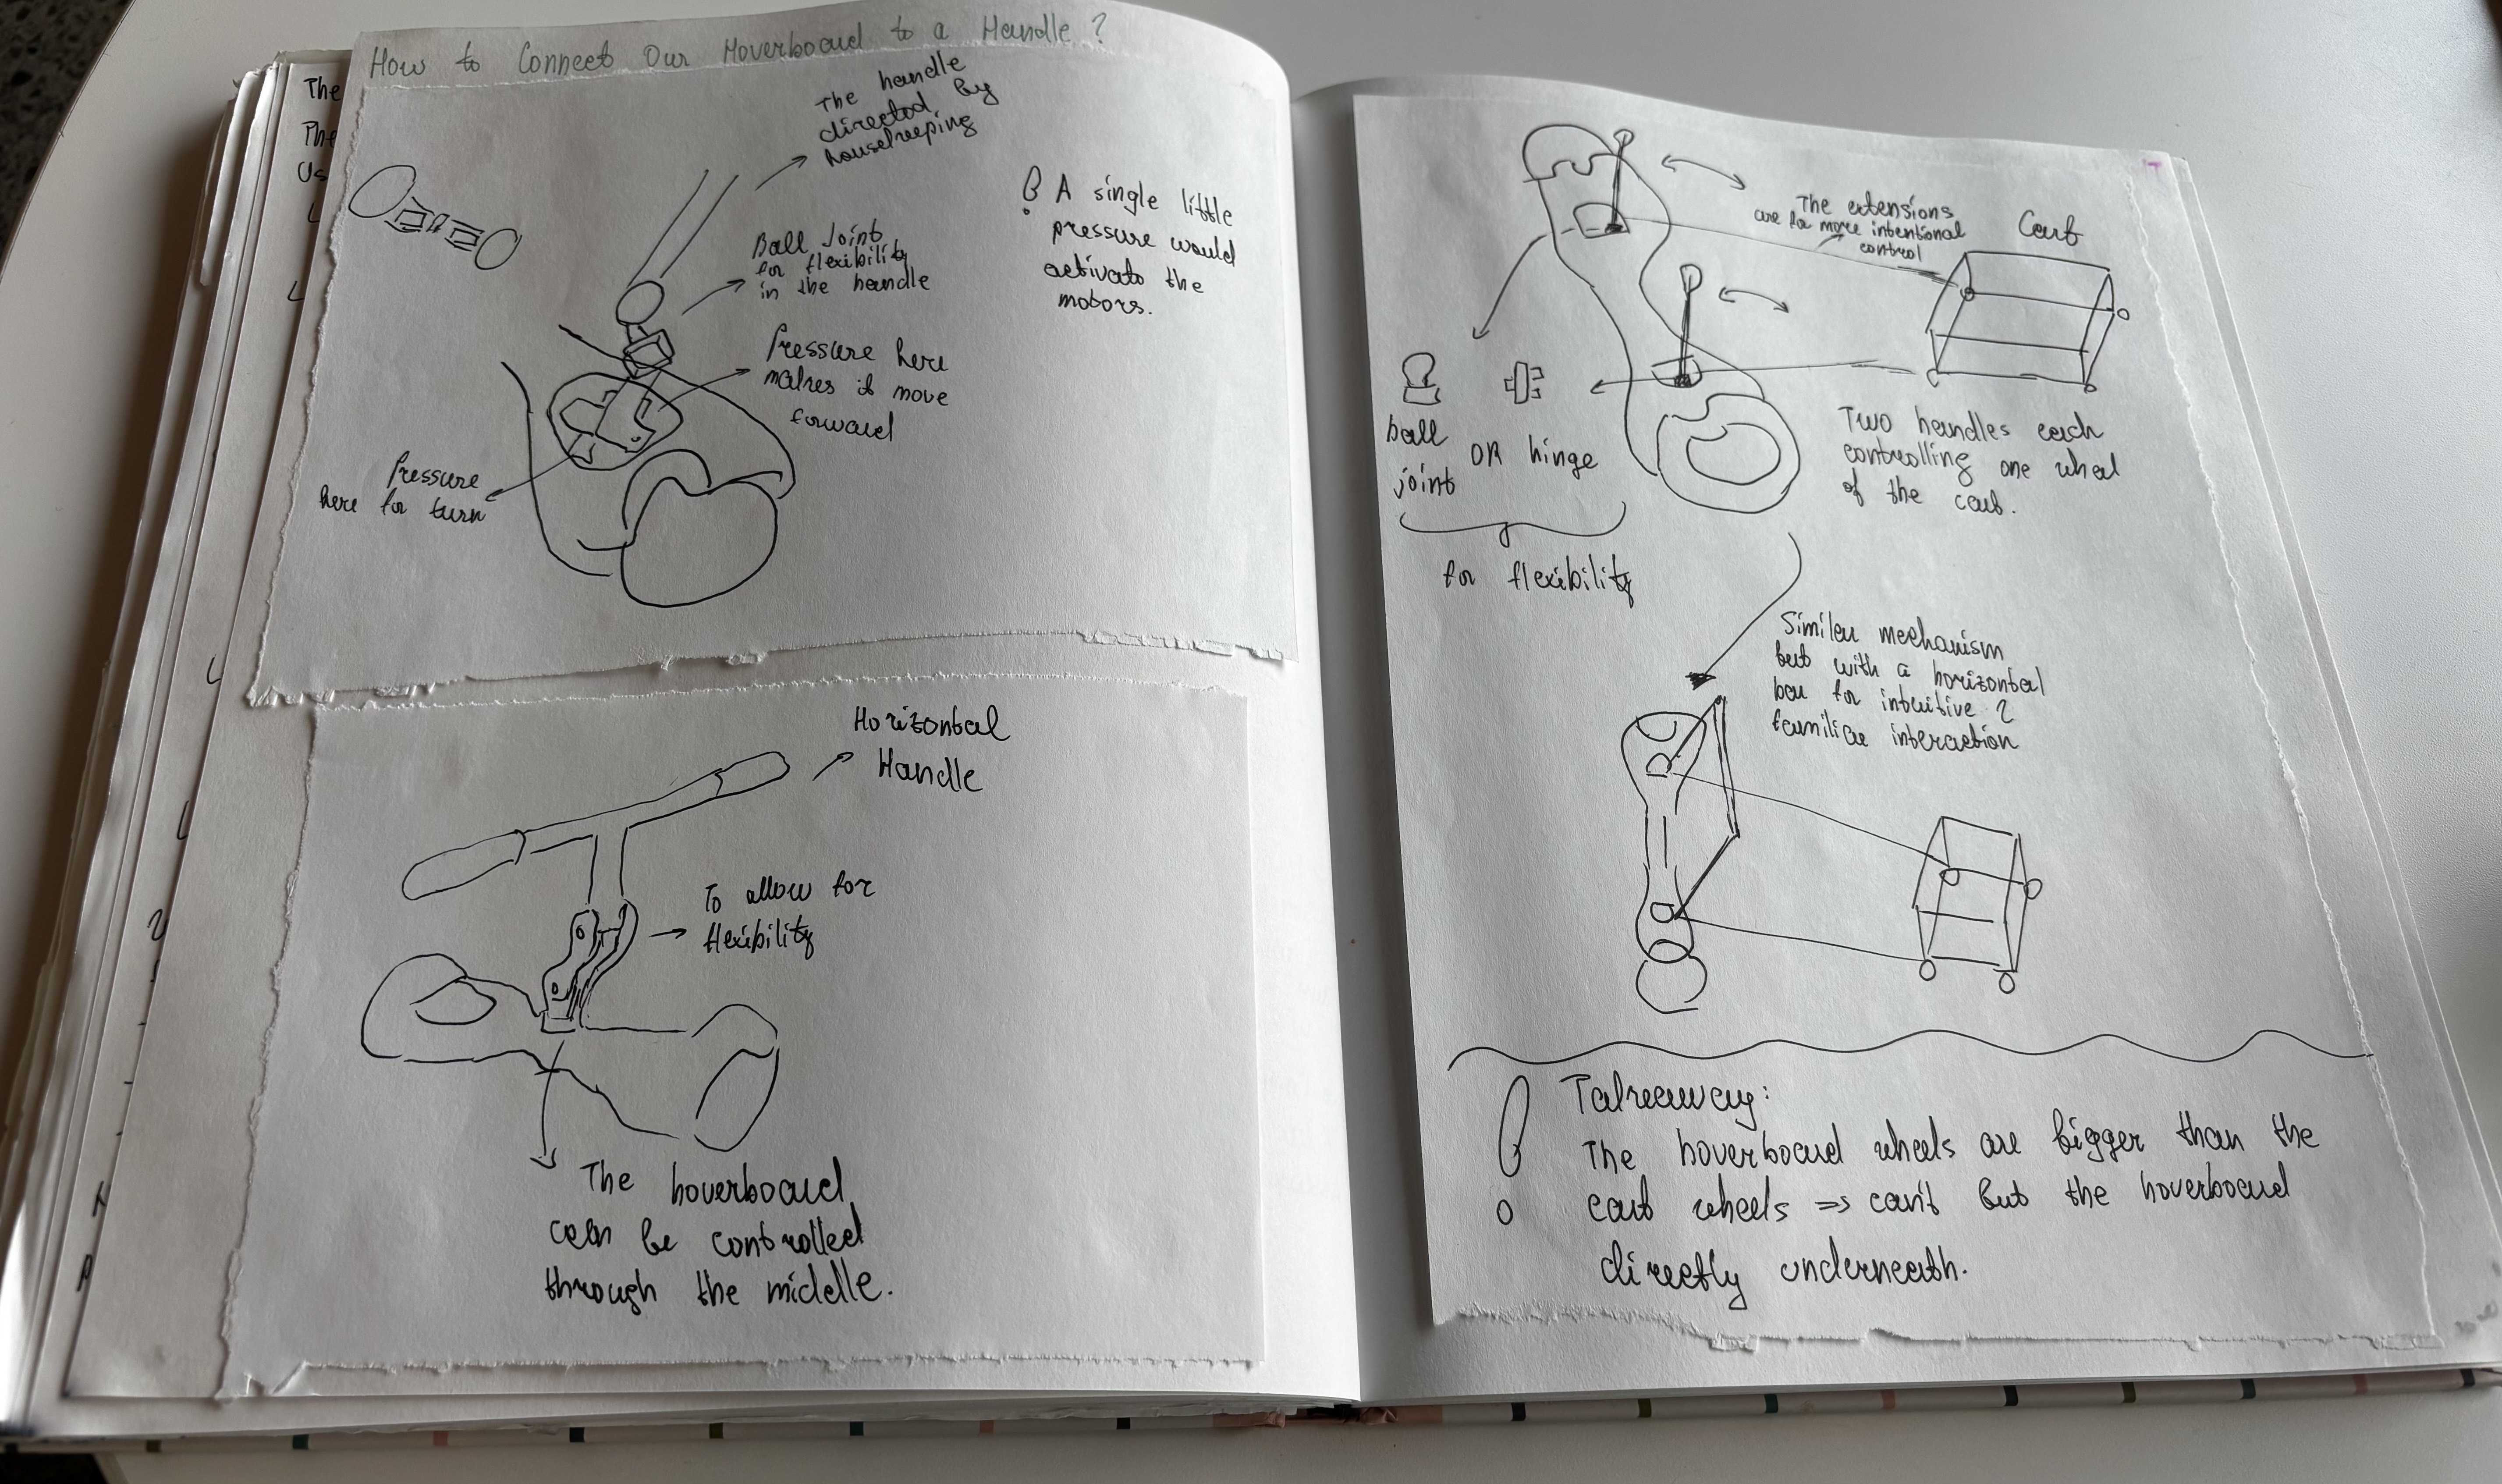 How to Connect Our Hoverboard to a Handle?
The
The
Us
The handle
directed by
housekeeping
Ball Joint
for flexibility
in the handle
Pressure here
makes it move
forward
Pressure
here for turn
! A single little
pressure would
activate the
motors.
Horizontal
Handle
To allow for
flexibility
The hoverboard
can be controlled
through the middle.
The extensions
are for more intentional
control
Cart
ball
joint
OR hinge
for flexibility
Two handles each
controlling one wheel
of the cart.
Similar mechanism
but with a horizontal
bar for intuitive &
familiar interaction
! Takeaway:
The hoverboard wheels are bigger than the
cart wheels => can't but the hoverboard
directly underneath.